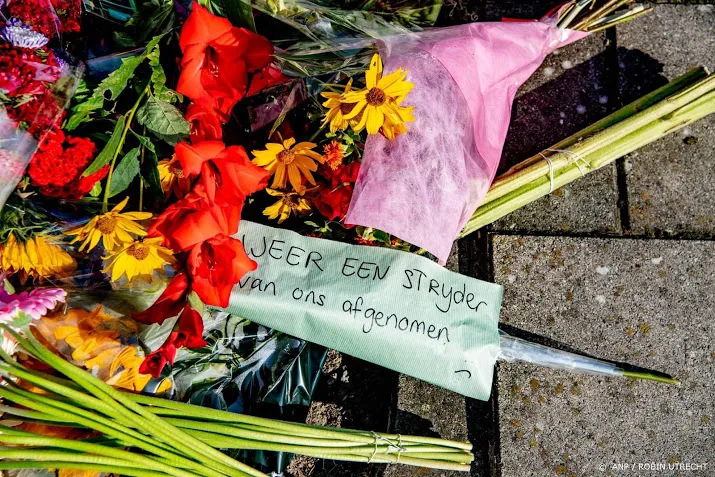 WEER EEN STRyder
van ons afgenomen
© ANP / ROBIN UTRECHT